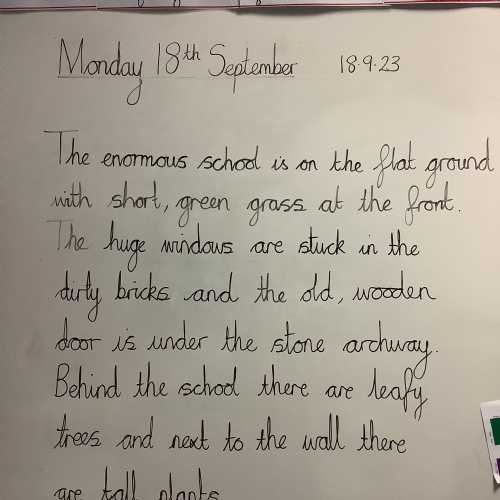 Monday 18th September 18.9.23
The enormous school is on the flat ground
with short, green grass at the front.
The huge windows are stuck in the
dirty bricks and the old, wooden
door is under the stone archway.
Behind the school there are leafy
trees and next to the wall there
are tall plants